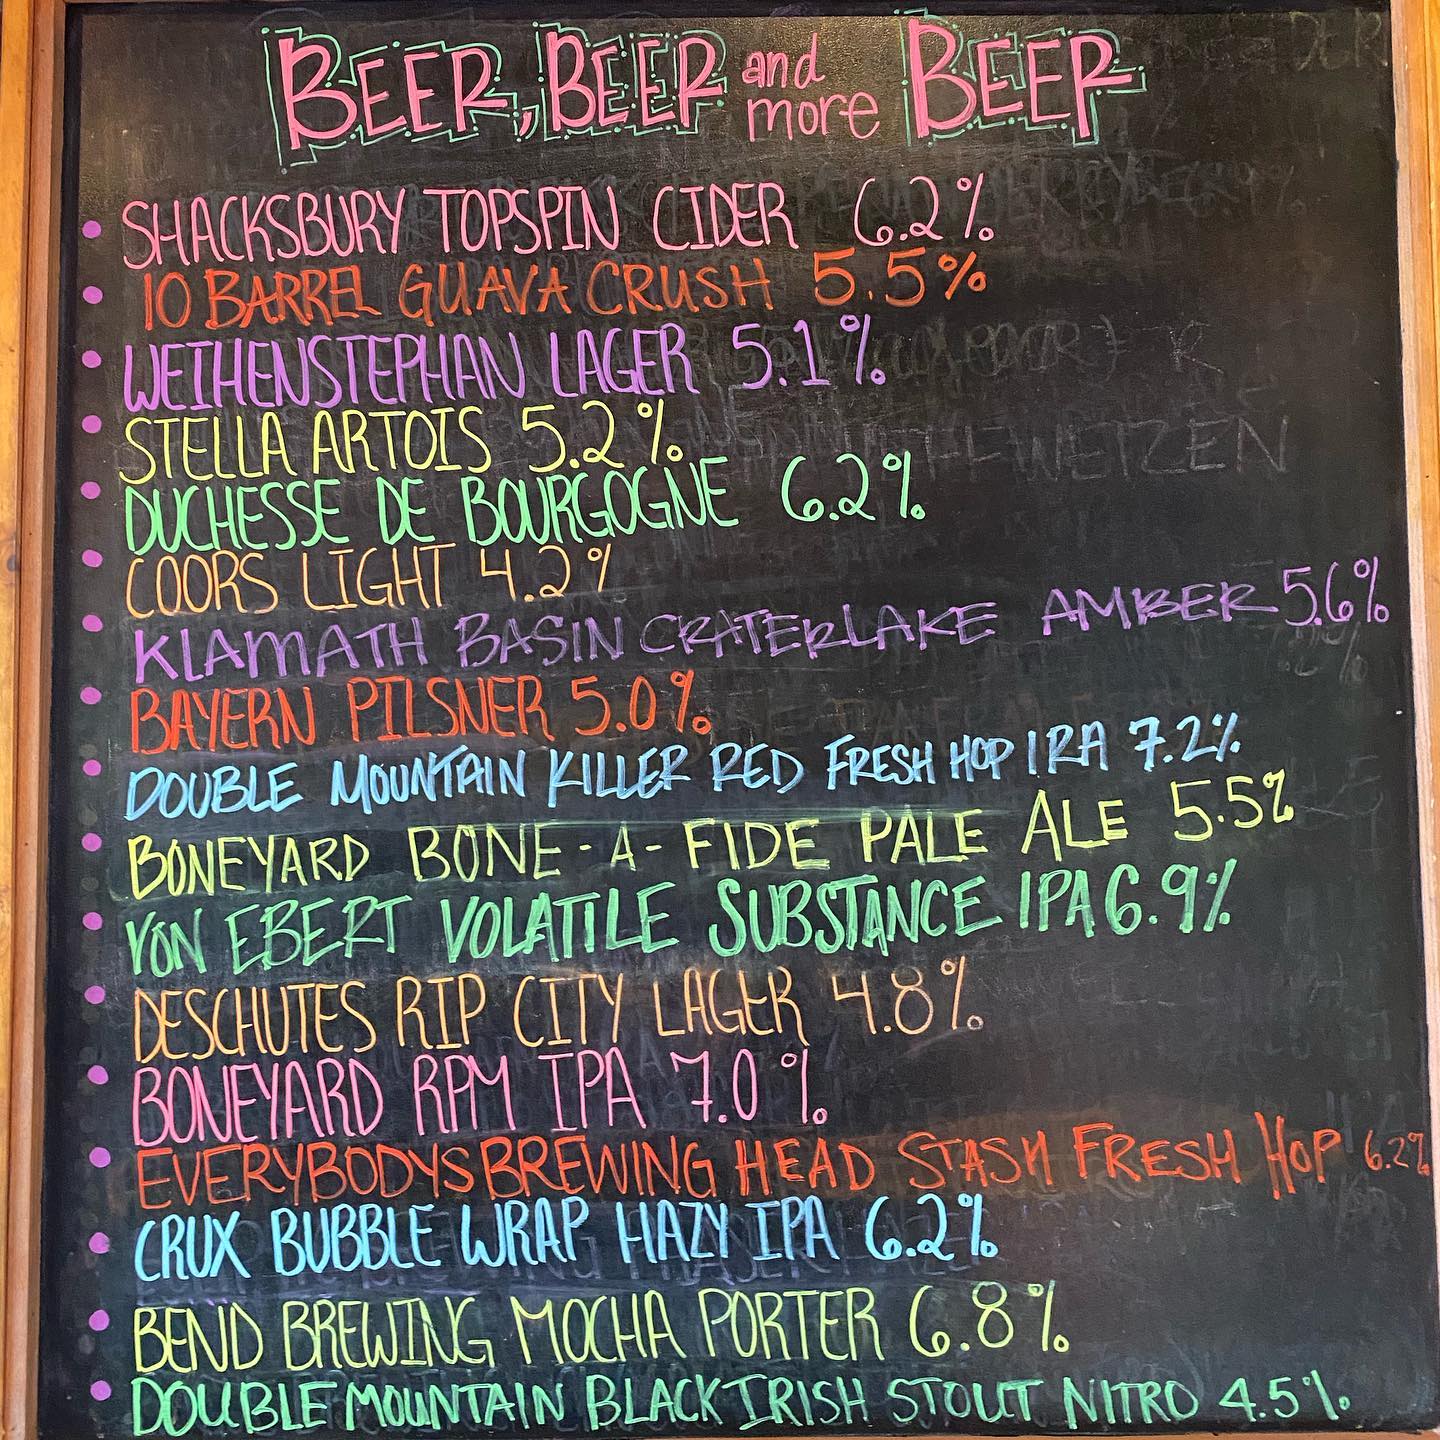 BEER, BEER and more BEER
• SHACKSBURY TOPSPIN CIDER 6.2%
• 10 BARREL GUAVA CRUSH 5.5%
• WEIHENSTEPHAN LAGER 5.1%
• STELLA ARTOIS 5.2%
• DUCHESSE DE BOURGOGNE 6.2%
• COORS LIGHT 4.2%
• KLAMATH BASIN CRATERLAKE AMBER 5.6%
• BAYERN PILSNER 5.0%
• DOUBLE MOUNTAIN KILLER RED FRESH HOP IRA 7.2%
• BONEYARD BONE-A-FIDE PALE ALE 5.5%
• VON EBERT VOLATILE SUBSTANCE IPA 6.9%
• DESCHUTES RIP CITY LAGER 4.8%
• BONEYARD RPM IPA 7.0%
• EVERYBODYS BREWING HEAD STASH FRESH HOP 6.2%
• CRUX BUBBLE WRAP HAZY IPA 6.2%
• BEND BREWING MOCHA PORTER 6.8%
• DOUBLE MOUNTAIN BLACK IRISH STOUT NITRO 4.5%